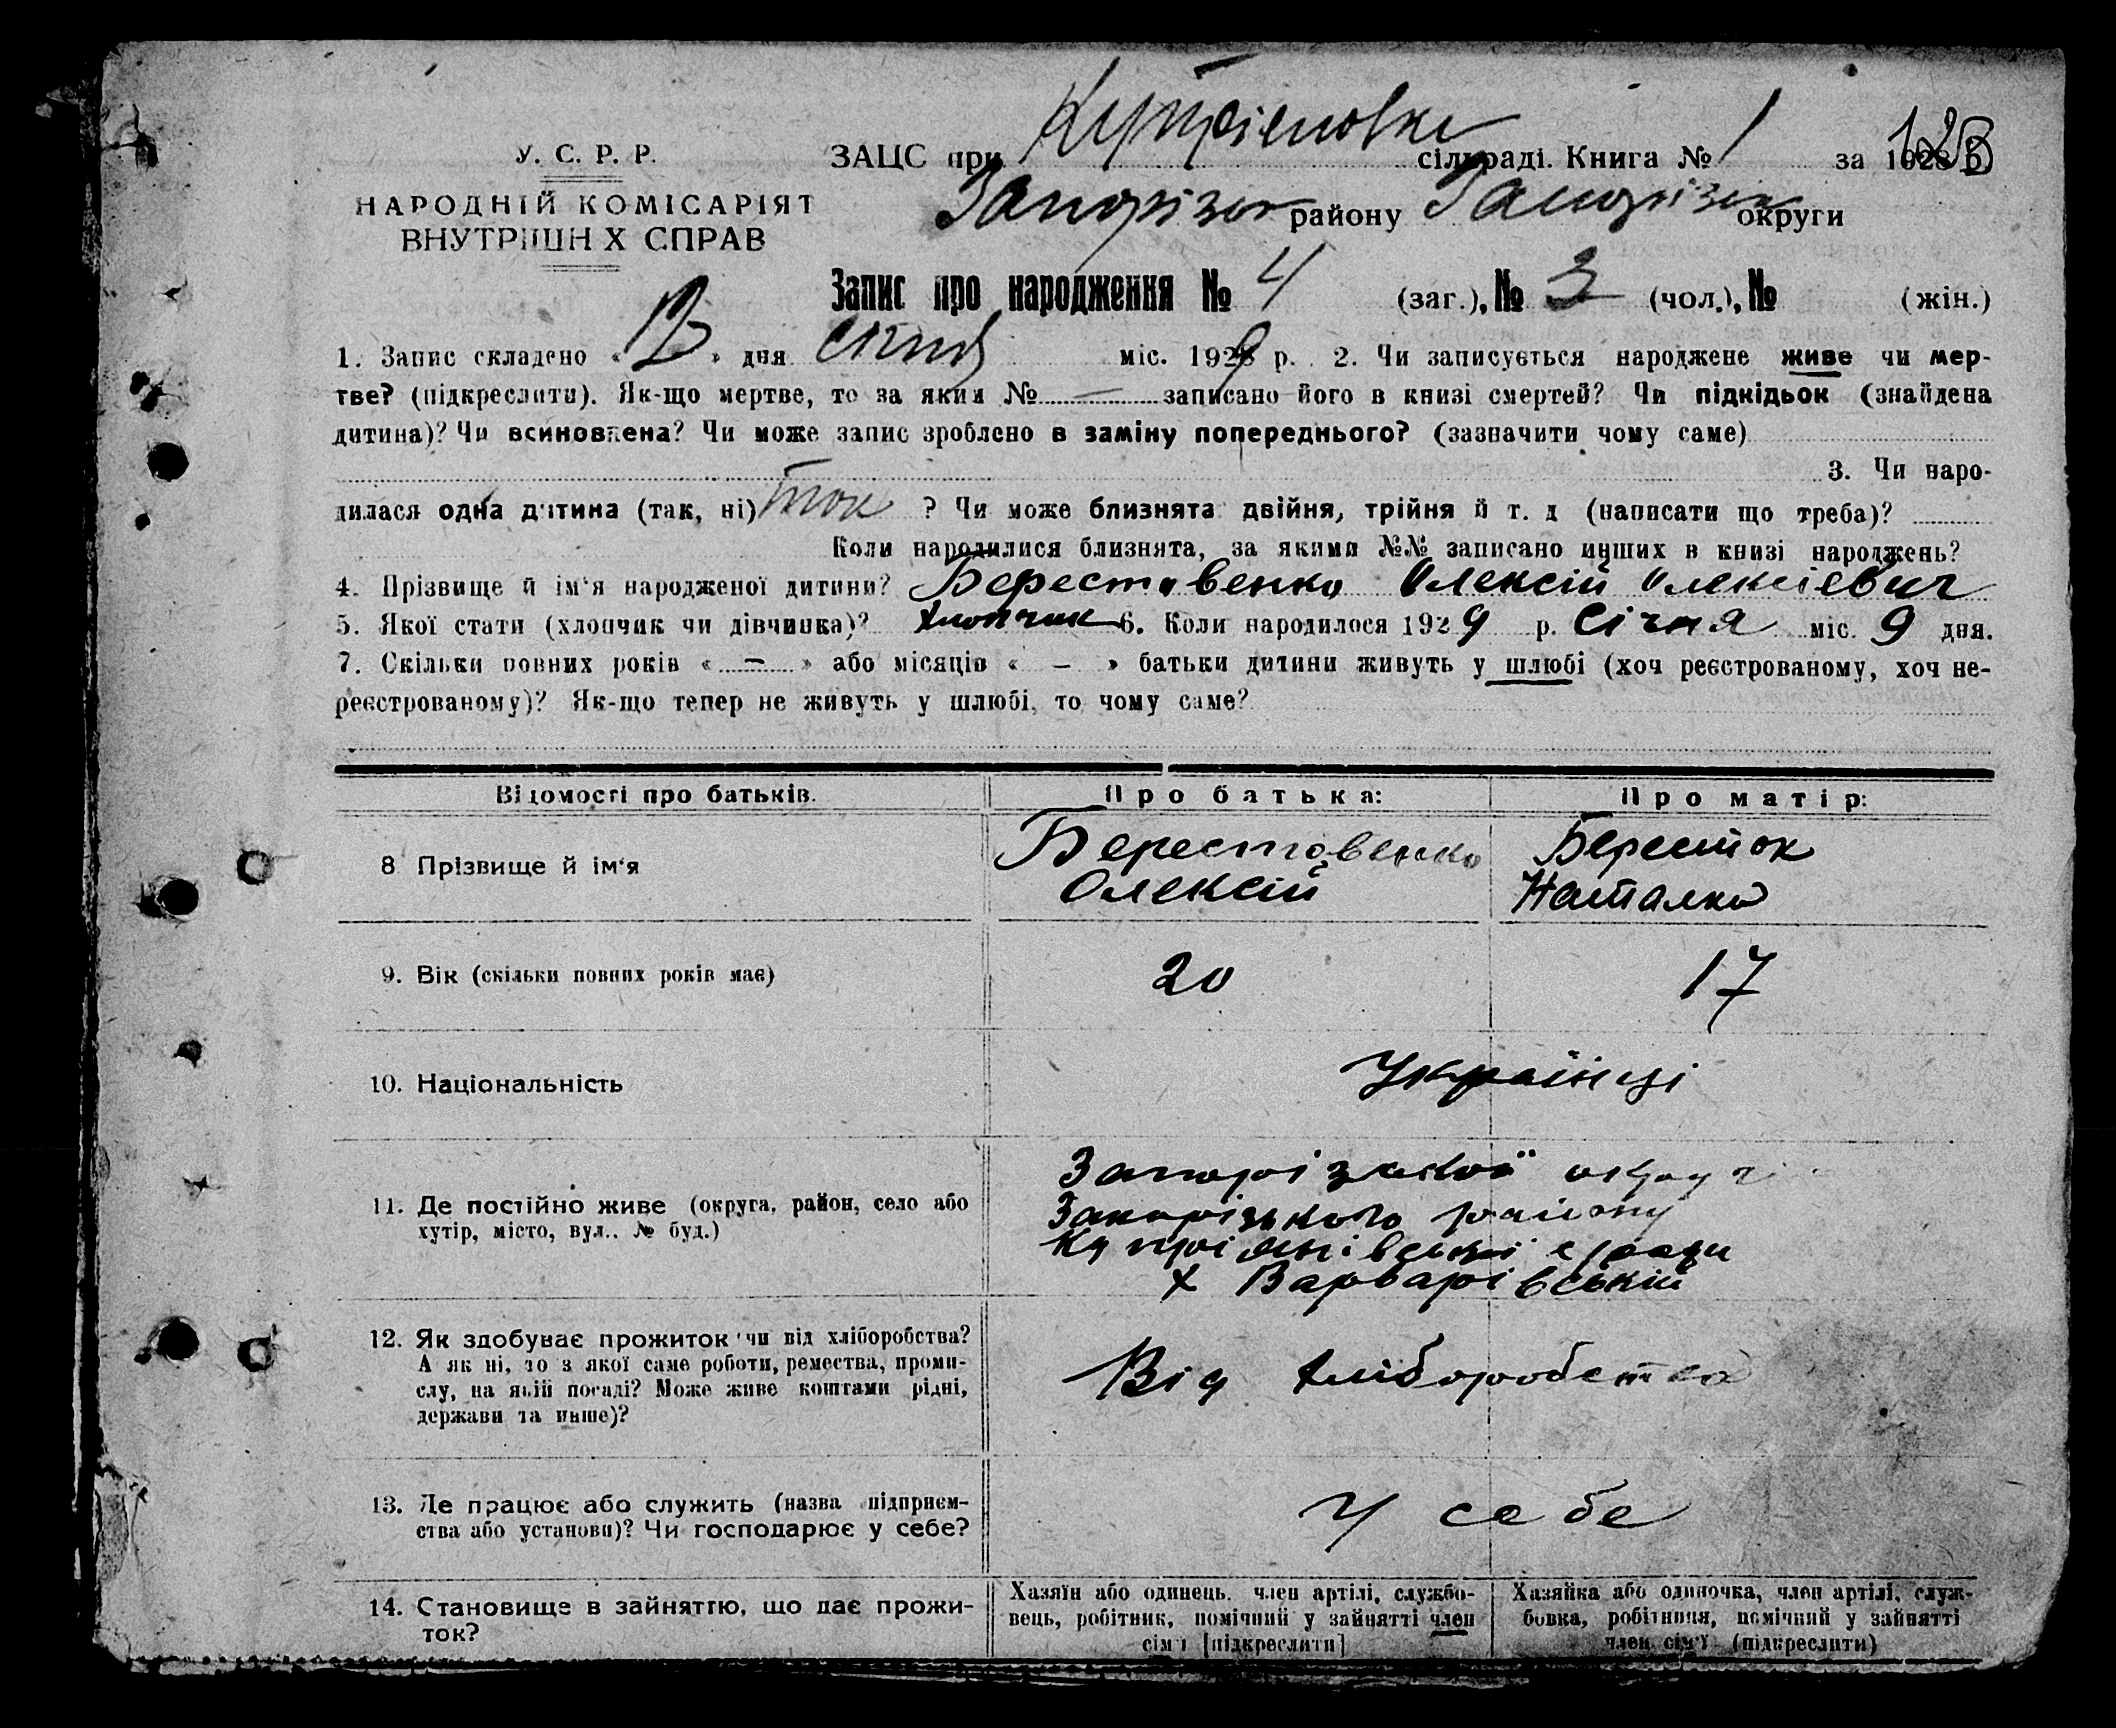 123
У. С. Р. Р.
НАРОДНІЙ КОМІСАРІЯТ
ВНУТРІШН Х СПРАВ
ЗАЦС при сільраді. Книга № 1 за 1928 р.
Запорізьк району Запорізьк округи
Запис про народження № 4 (заг.), № 3 (чол.), № (жін.)
1. Запис складено « » дня січня міс. 1929 р. 2. Чи записується народжене живе чи мер-
тве? (підкреслити). Як-що мертве, то за яким № — записано його в книзі смертей? Чи підкідьок (знайдена
дитина)? Чи всиновлена? Чи може запис зроблено в заміну попереднього? (зазначити чому саме)
3. Чи наро-
дилася одна дитина (так, ні) так ? Чи може близнята двійня, трійня й т. д (написати що треба)?
Коли народилися близнята, за якими №№ записано инших в книзі народжень?
4. Прізвище й ім'я народженої дитини? Берестовенко Олексій Олексієвич
5. Якої стати (хлопчик чи дівчинка)? хлопчик 6. Коли народилося 1929 р. січня міс. 9 дня.
7. Скільки повних років « — » або місяців « — » батьки дитини живуть у шлюбі (хоч реєстрованому, хоч не-
реєстрованому)? Як-що тепер не живуть у шлюбі, то чому саме?
Відомості про батьків. Про батька: Про матір:
8 Прізвище й ім'я Берестовенко Олексій Наталка
9. Вік (скільки повних років має) 20 17
10. Національність Українці
11. Де постійно живе (округа, район, село або
хутір, місто, вул.. № буд.)
Запорізької округи
Запорізького району
Купріянівської с/ради
х Варварівській
12. Як здобуває прожиток чи від хліборобства?
А як ні, то з якої саме роботи, ремества, проми-
слу, на якій посаді? Може живе коштами рідні,
держави та инше)?
Від хліборобства
13. Де працює або служить (назва підприєм-
ства або установи)? Чи господарює у себе?
У себе
14. Становище в зайняттю, що дає прожи-
ток?
Хазяїн або одинець. член артілі, службо-
вець, робітник, помічний у зайнятті член
сім'ї [підкреслити]
Хазяйка або одиночка, член артілі, служ-
бовка, робітниця, помічний у зайнятті
член сім'ї (підкреслити)